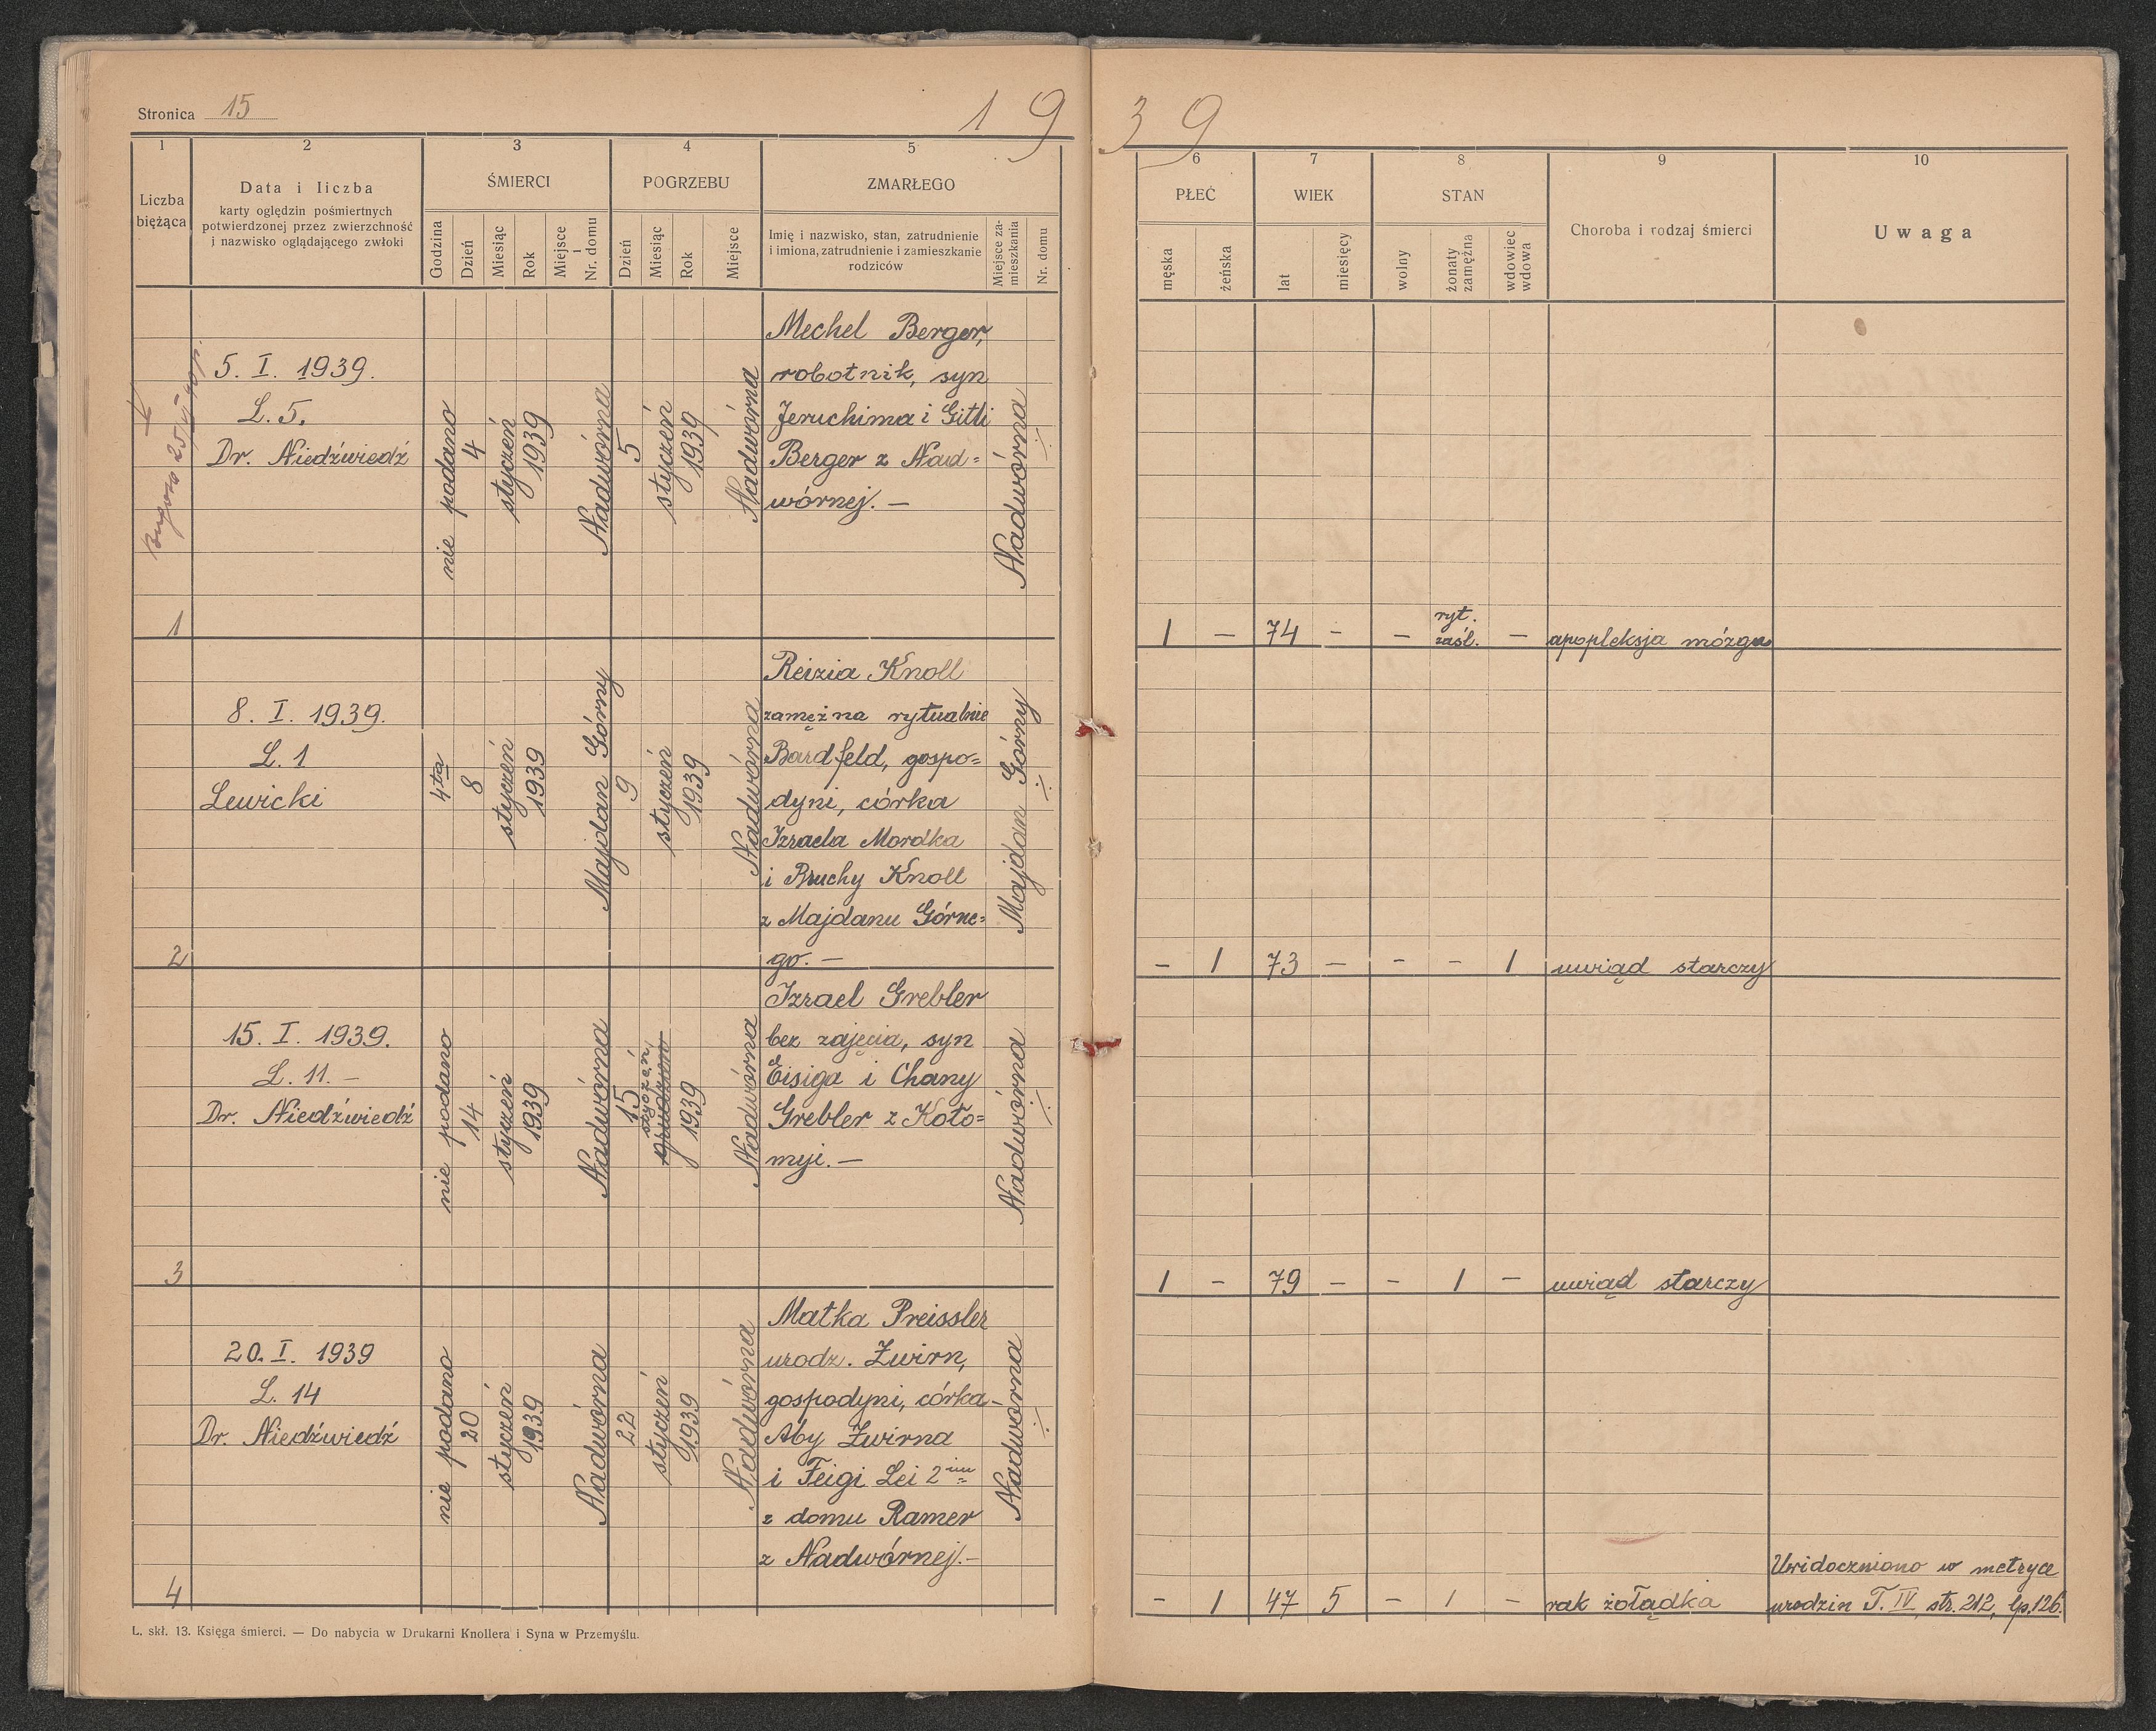 Stronica 15
1 9 3 9
1
2
3
4
5
6
7
8
9
10
Liczba
bieżąca
Data i liczba
karty oględzin pośmiertnych
potwierdzonej przez zwierzchność
i nazwisko oglądającego zwłoki
ŚMIERCI
Godzina
Dzień
Miesiąc
Rok
Miejsce
i
Nr. domu
POGRZEBU
Dzień
Miesiąc
Rok
Miejsce
ZMARŁEGO
Imię i nazwisko, stan, zatrudnienie
i imiona, zatrudnienie i zamieszkanie
rodziców
Miejsce za-
mieszkania
Nr. domu
PŁEĆ
męska
żeńska
WIEK
lat
miesięcy
STAN
wolny
żonaty
zamężna
wdowiec
wdowa
Choroba i rodzaj śmierci
Uwaga
1
5. I. 1939.
L. 5.
Dr. Niedźwiedź
nie podano
4
styczeń
1939
Nadwórna
5
styczeń
1939
Nadwórna
Mechel Berger,
robotnik, syn
Jeruchima i Gitli
Berger z Nad=
wórnej. —
Nadwórna
1 — 74 — — ryt.
zaśl. — apopleksja mózgu
2
8. I. 1939.
L. 1
Lewicki
4ta
8
styczeń
1939
Majdan Górny
9
styczeń
1939
Nadwórna
Reizia Knoll
zamężna rytualnie
Bardfeld, gospo=
dyni, córka
Izraela Mordka
i Bruchy Knoll
z Majdanu Górne=
go. —
Majdan Górny
— 1 73 — — — 1 uwiąd starczy
3
15. I. 1939.
L. 11. —
Dr. Niedźwiedź
nie podano
14
styczeń
1939
Nadwórna
15
styczeń
grudzień
1939
Nadwórna
Izrael Grebler
bez zajęcia, syn
Eisiga i Chany
Grebler z Koło=
myi. —
Nadwórna
1 — 79 — — 1 — uwiąd starczy
4
20. I. 1939
L. 14
Dr. Niedźwiedź
nie podano
20
styczeń
1939
Nadwórna
22
styczeń
1939
Nadwórna
Matka Preissler
urodz. Zwirn,
gospodyni, córka
Aby Zwirna
i Feigi Lei 2im
z domu Ramer
z Nadwórnej. —
Nadwórna
— 1 47 5 — 1 — rak żołądka
Uwidoczniono w metryce
urodzin T. IV, str. 212, lp. 126.
L. skł. 13. Księga śmierci. — Do nabycia w Drukarni Knollera i Syna w Przemyślu.